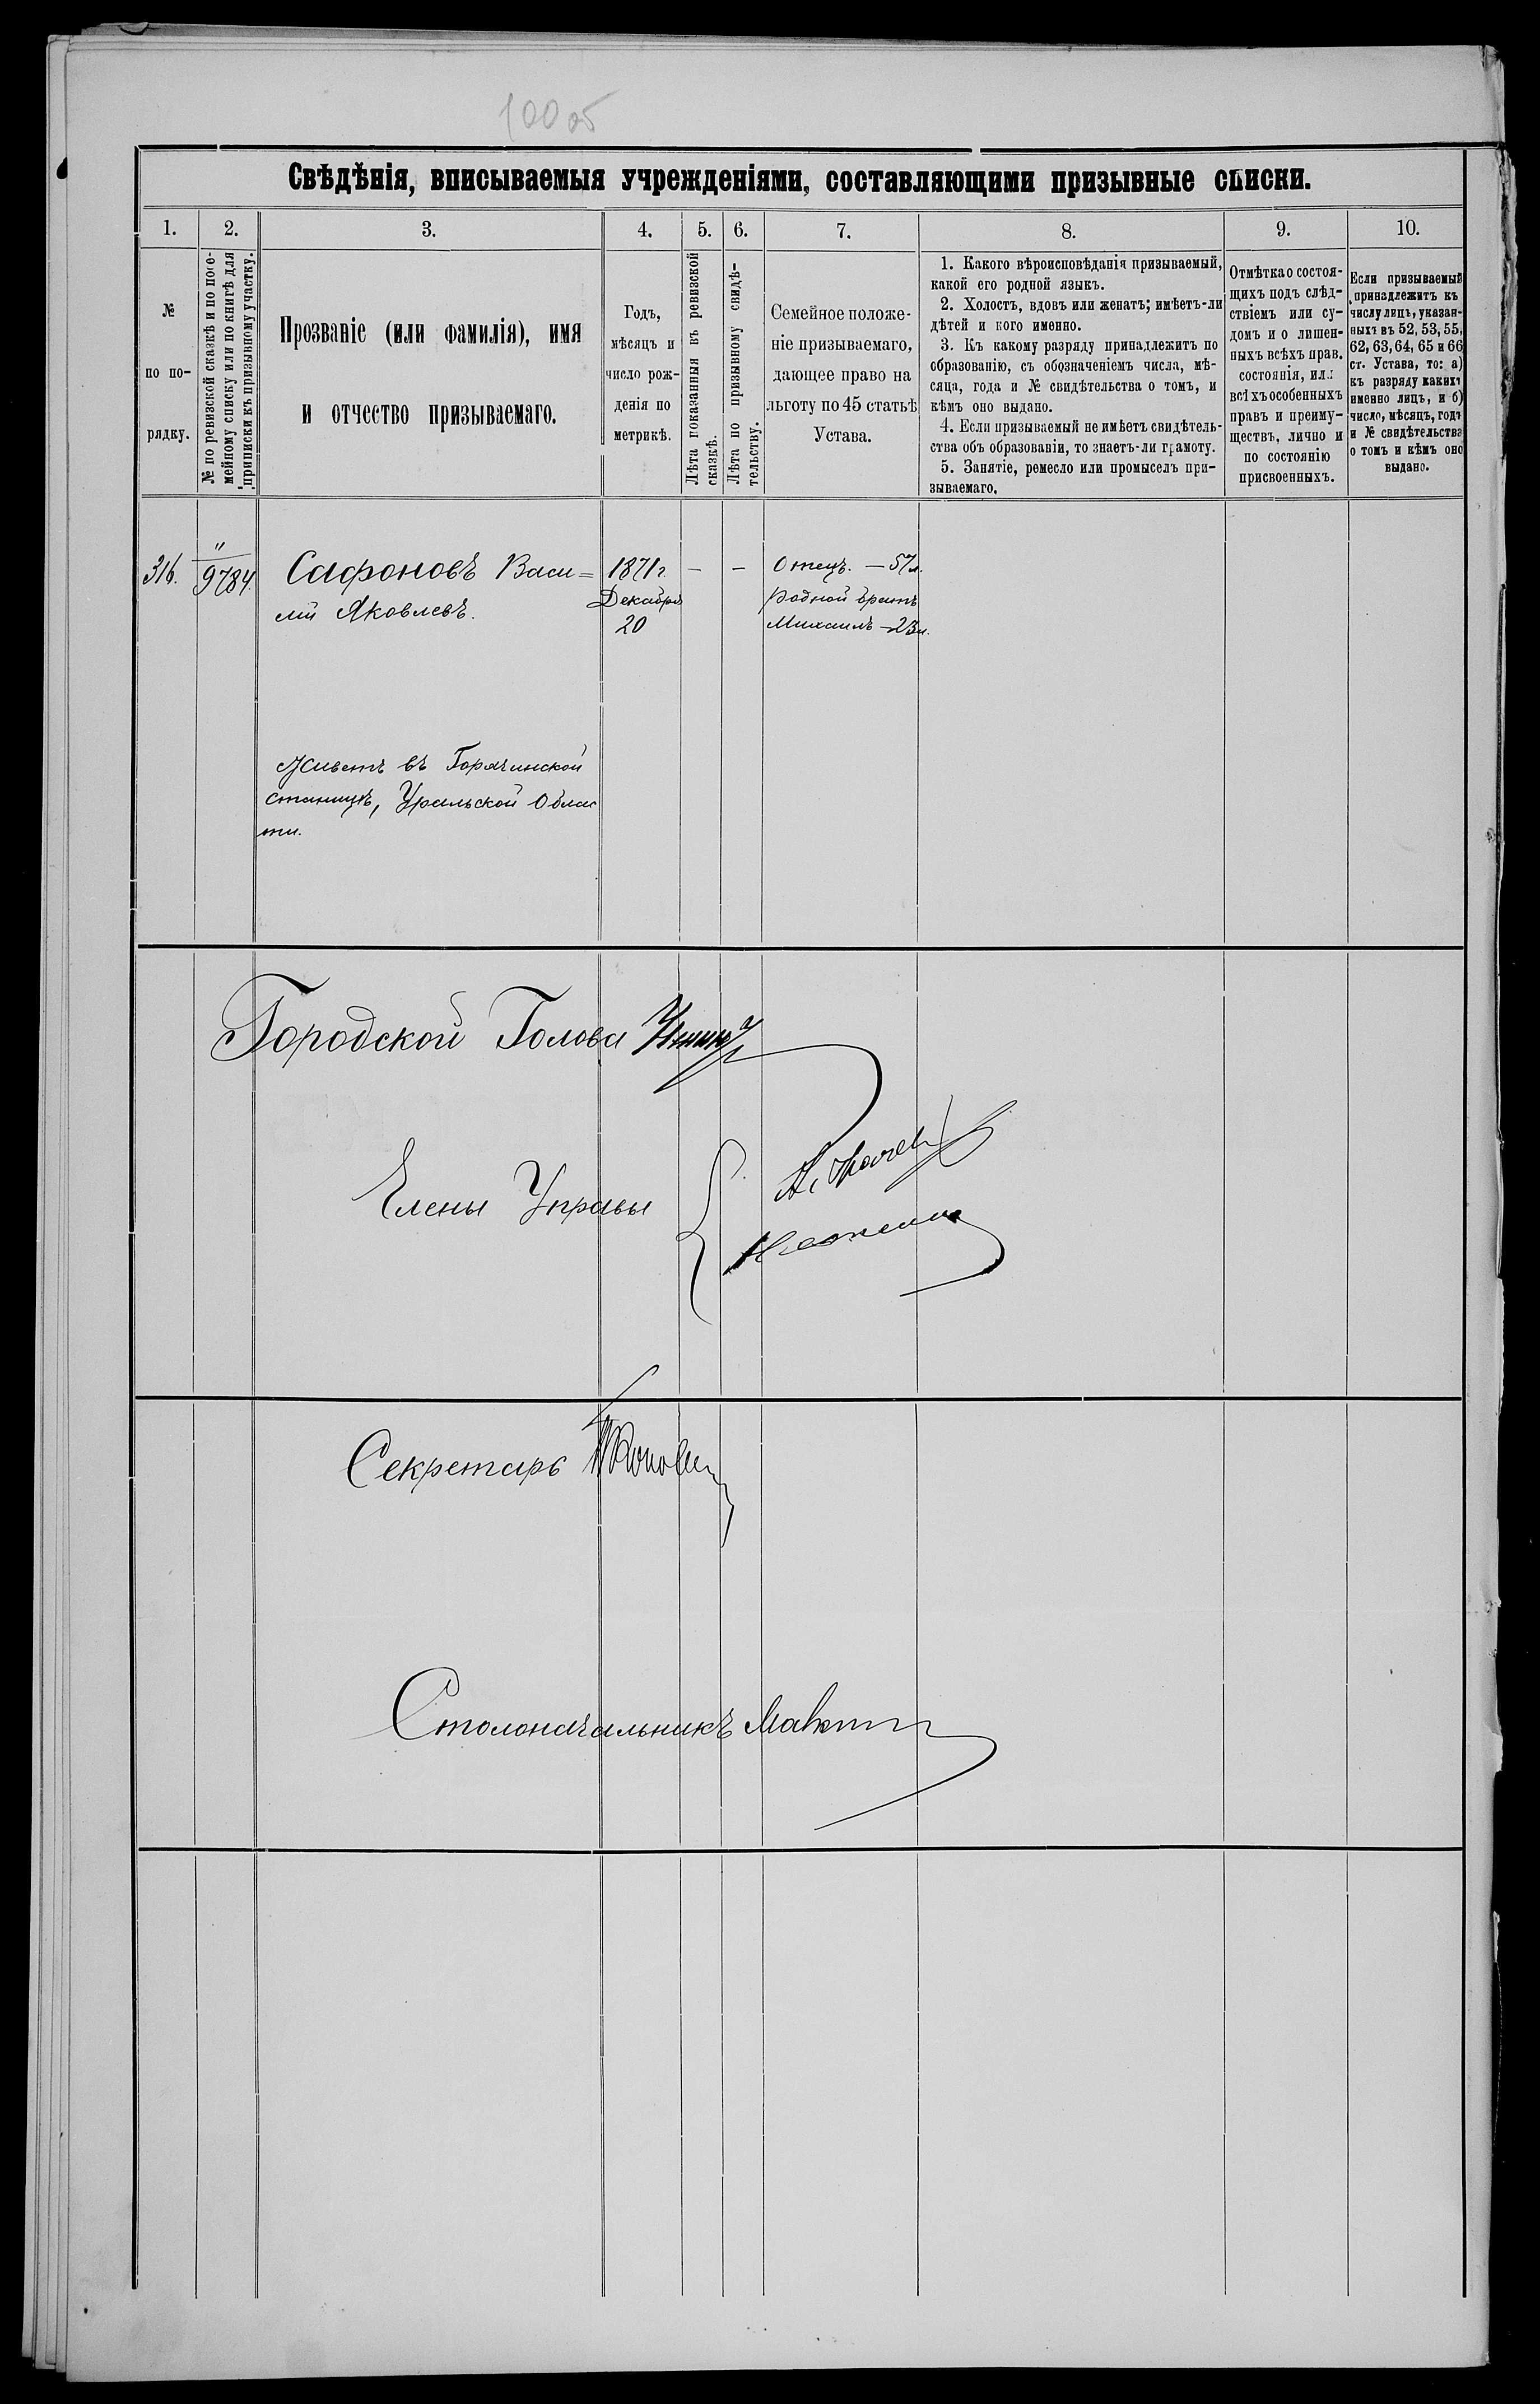 100 об
Свѣдѣнія, вписываемыя учрежденіями, составляющими призывные списки.
1. 2. 3. 4. 5. 6. 7. 8. 9. 10.
№
по по-
рядку.
№ по ревизской сказкѣ и по посе-
мейному списку или по книгѣ для
приписки къ призывному участку.
Прозваніе (или фамилія), имя
и отчество призываемаго.
Годъ,
мѣсяцъ и
число рож-
денія по
метрикѣ.
Лѣта показанныя въ ревизской
сказкѣ.
Лѣта по призывному свидѣ-
тельству.
Семейное положе-
ніе призываемаго,
дающее право на
льготу по 45 статьѣ
Устава.
1. Какого вѣроисповѣданія призываемый,
какой его родной языкъ.
2. Холостъ, вдовъ или женатъ; имѣетъ-ли
дѣтей и кого именно.
3. Къ какому разряду принадлежитъ по
образованію, съ обозначеніемъ числа, мѣ-
сяца, года и № свидѣтельства о томъ, и
кѣмъ оно выдано.
4. Если призываемый не имѣетъ свидѣтель-
ства объ образованіи, то знаетъ-ли грамоту.
5. Занятіе, ремесло или промыселъ при-
зываемаго.
Отмѣтка о состоя-
щихъ подъ слѣд-
ствіемъ или су-
домъ и о лишен-
ныхъ всѣхъ прав.
состоянія, или
всѣхъ особенныхъ
правъ и преиму-
ществъ, лично и
по состоянію
присвоенныхъ.
Если призываемый
принадлежитъ къ
числу лицъ, указан-
ныхъ въ 52, 53, 55,
62, 63, 64, 65 и 66
ст. Устава, то: а)
къ разряду какихъ
именно лицъ, и б)
число, мѣсяцъ, годъ
и № свидѣтельства
о томъ и кѣмъ оно
выдано.
316. " 9784. Сафоновъ Васи= 1871 г. — — Отецъ. — 57 л.
лій Яковлевъ. Декабря Родной братъ
20 Михаилъ — 23 л.
Живетъ въ Горячинской
станицѣ, Уральской Облас
ти.
Городской Голова
Члены Управы
Секретарь
Столоначальникъ